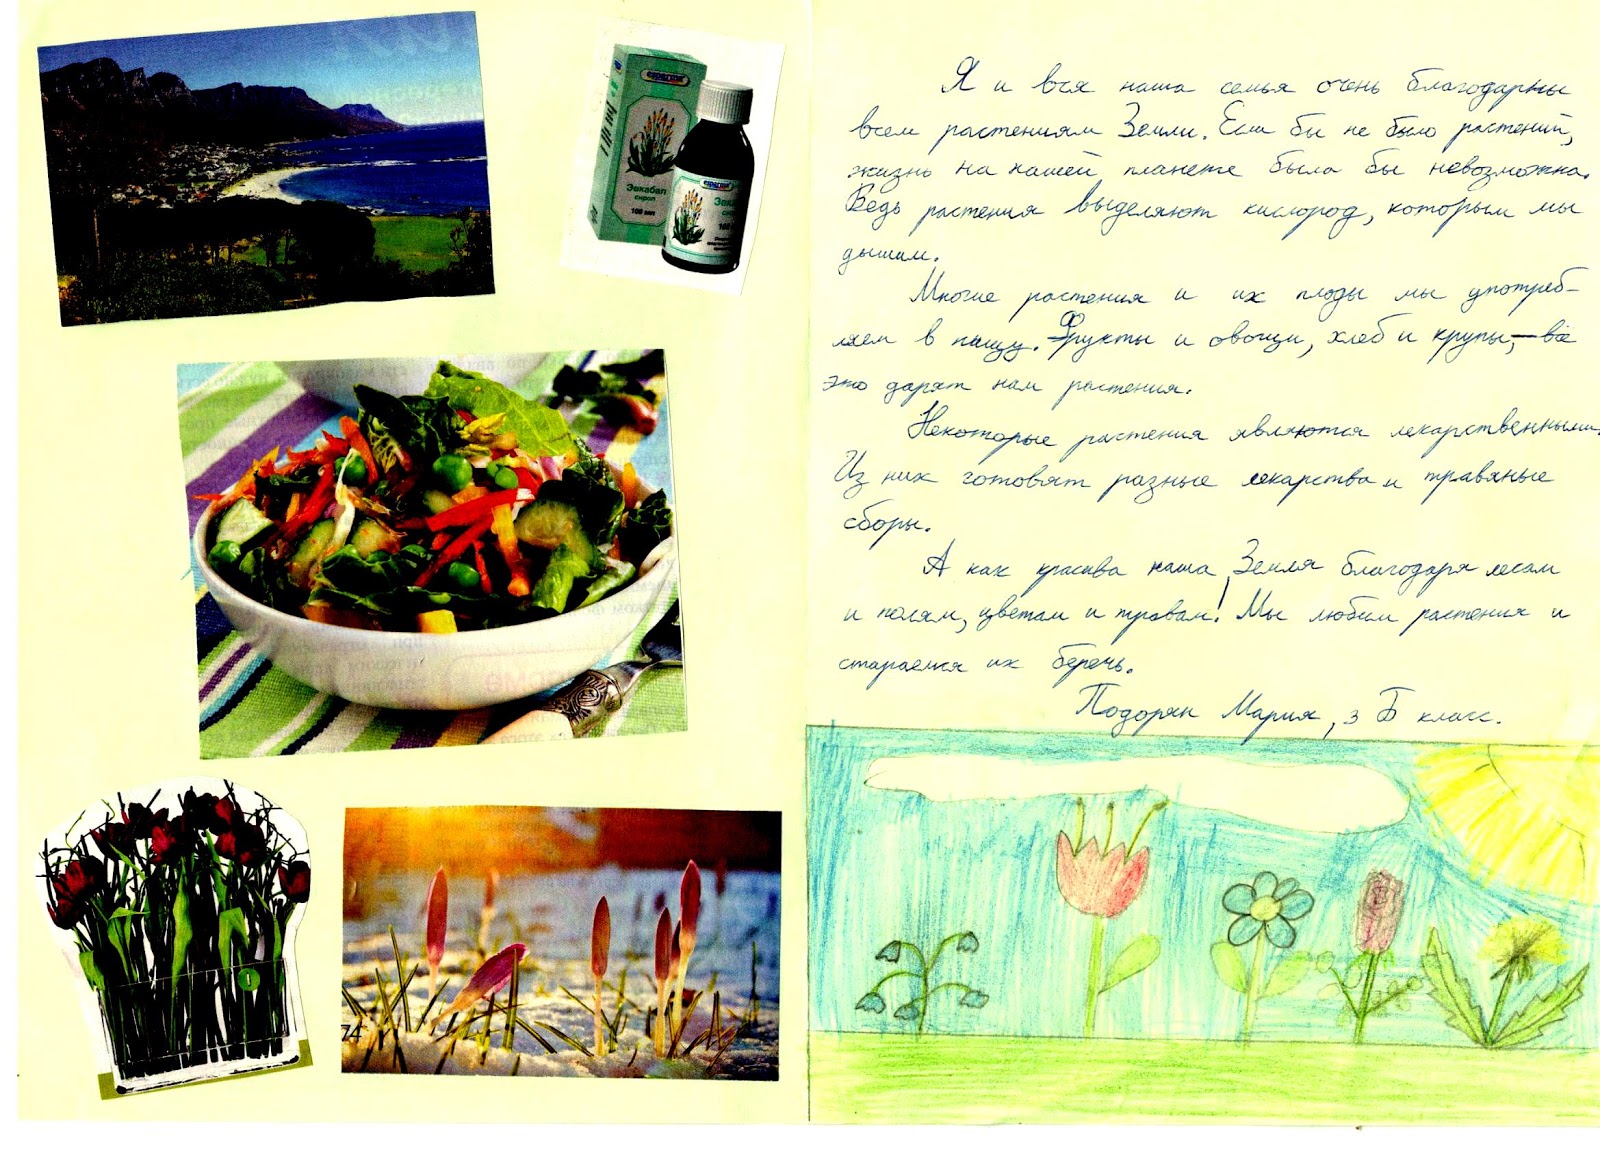 Эвкабал
сироп
100 мл
Эвка
сироп
100
1
74
Я и вся наша семья очень благодарны
всем растениям Земли. Если бы не было растений,
жизнь на нашей планете была бы невозможна.
Ведь растения выделяют кислород, которым мы
дышим.
Многие растения и их плоды мы употреб-
ляем в пищу. Фрукты и овощи, хлеб и крупы, – всё
это дарят нам растения.
Некоторые растения являются лекарственными.
Из них готовят разные лекарства и травяные
сборы.
А как красива наша Земля благодаря лесам
и полям, цветам и травам! Мы любим растения и
стараемся их беречь.
Подорян Мария, 3 Б класс.